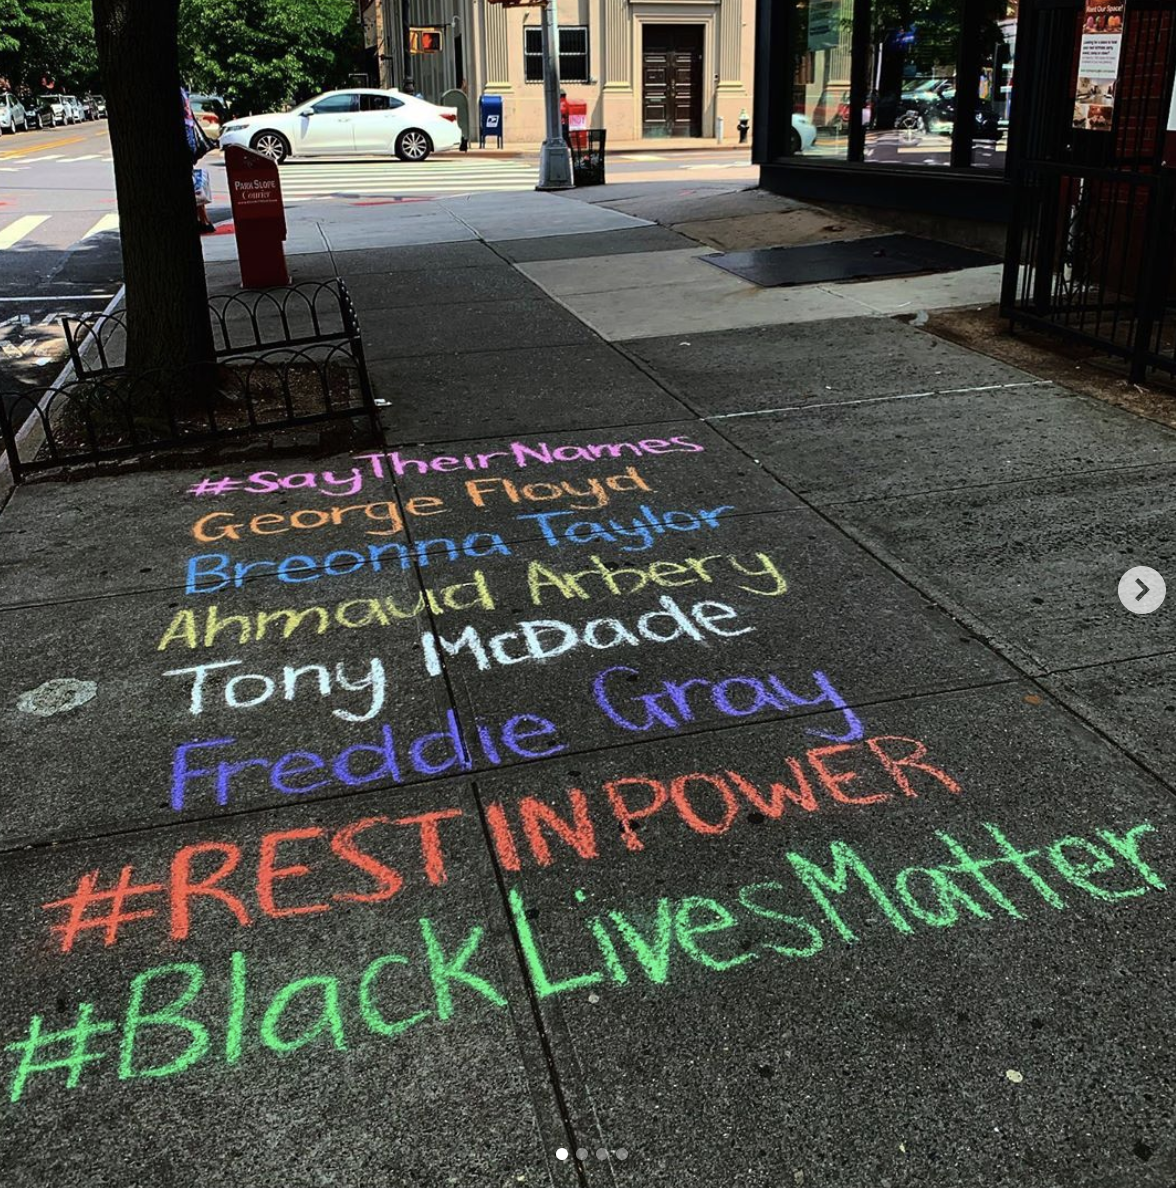 Rent Our Space!
PARK SLOPE
Courier
#SayTheirNames
George Floyd
Breonna Taylor
Ahmaud Arbery
Tony McDade
Freddie Gray
#REST IN POWER
#BlackLivesMatter